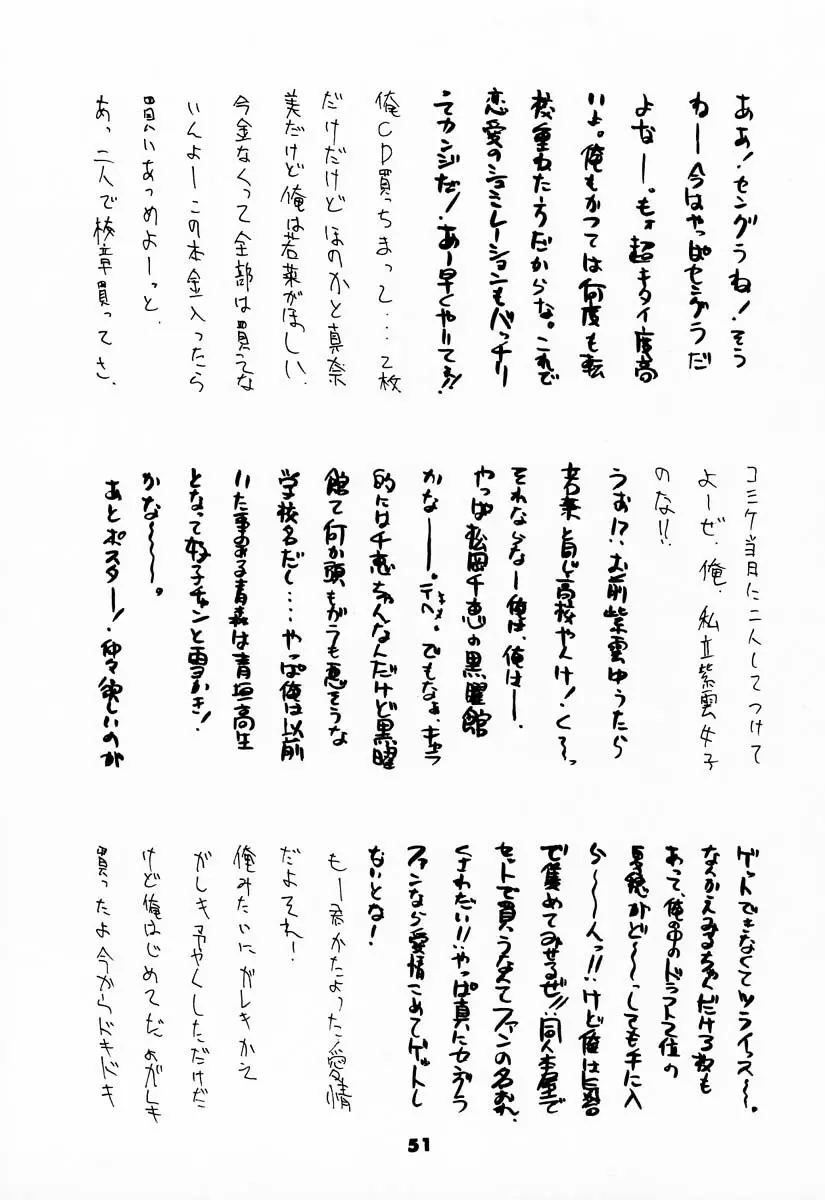 ああ！セングラね！そう
ねー今はやっぱセングラだ
よなー。もォ超キタイ度高
いよ。俺もかつては何度も転
校重ねた方だからな。これで
恋愛のシュミレーションもバッチリ
てカンジだ！あー早くやりてえ！
俺CD買っちまって…2枚
だけだけど ほのかと真奈
美だけど俺は若菜がほしい、
今金なくって全部は買えな
いんよーこの本金入ったら
買いあつめよーっと、
あっ二人で校章買ってさ、
コミケ当日に二人してつけて
よーぜ、俺、私立紫雲女子
のな!!
うお!?お前紫雲ゆうたら
若菜と同じ高校やんけ！くーっ
それならなー俺は、俺はー、
やっぱ松岡千恵の黒曜館
かなー。テヘ。でもなぁ、キャラ
的には千恵ちゃんなんだけど黒曜
館て何か頭もがらも悪そうな
学校名だし…やっぱ俺は以前
いた事のある青森は青垣高生
となって妙子チャンと雪かき！
かな〜〜。
あとポスター！仲々欲しいのが
ゲットできなくてツライっス〜。
なんかえみるちゃんだけ3枚も
あって、俺の中のドラフト2位の
夏穂がど〜〜っしても手に入
ら〜〜んっ!!けど俺は
で集めてみせるぜ!!同人本屋で
セットで買うなんてファンの名おれ、
くさわたい!!やっぱ真にセングラ
ファンなら愛情こめてゲットし
ないとな！
もー君かたよった愛情
だよそれー！
俺みたいにガレキかえ
ガレキ予やくしただけだ
けど俺はじめてだよガレキ
買ったよ今からドキドキ
51